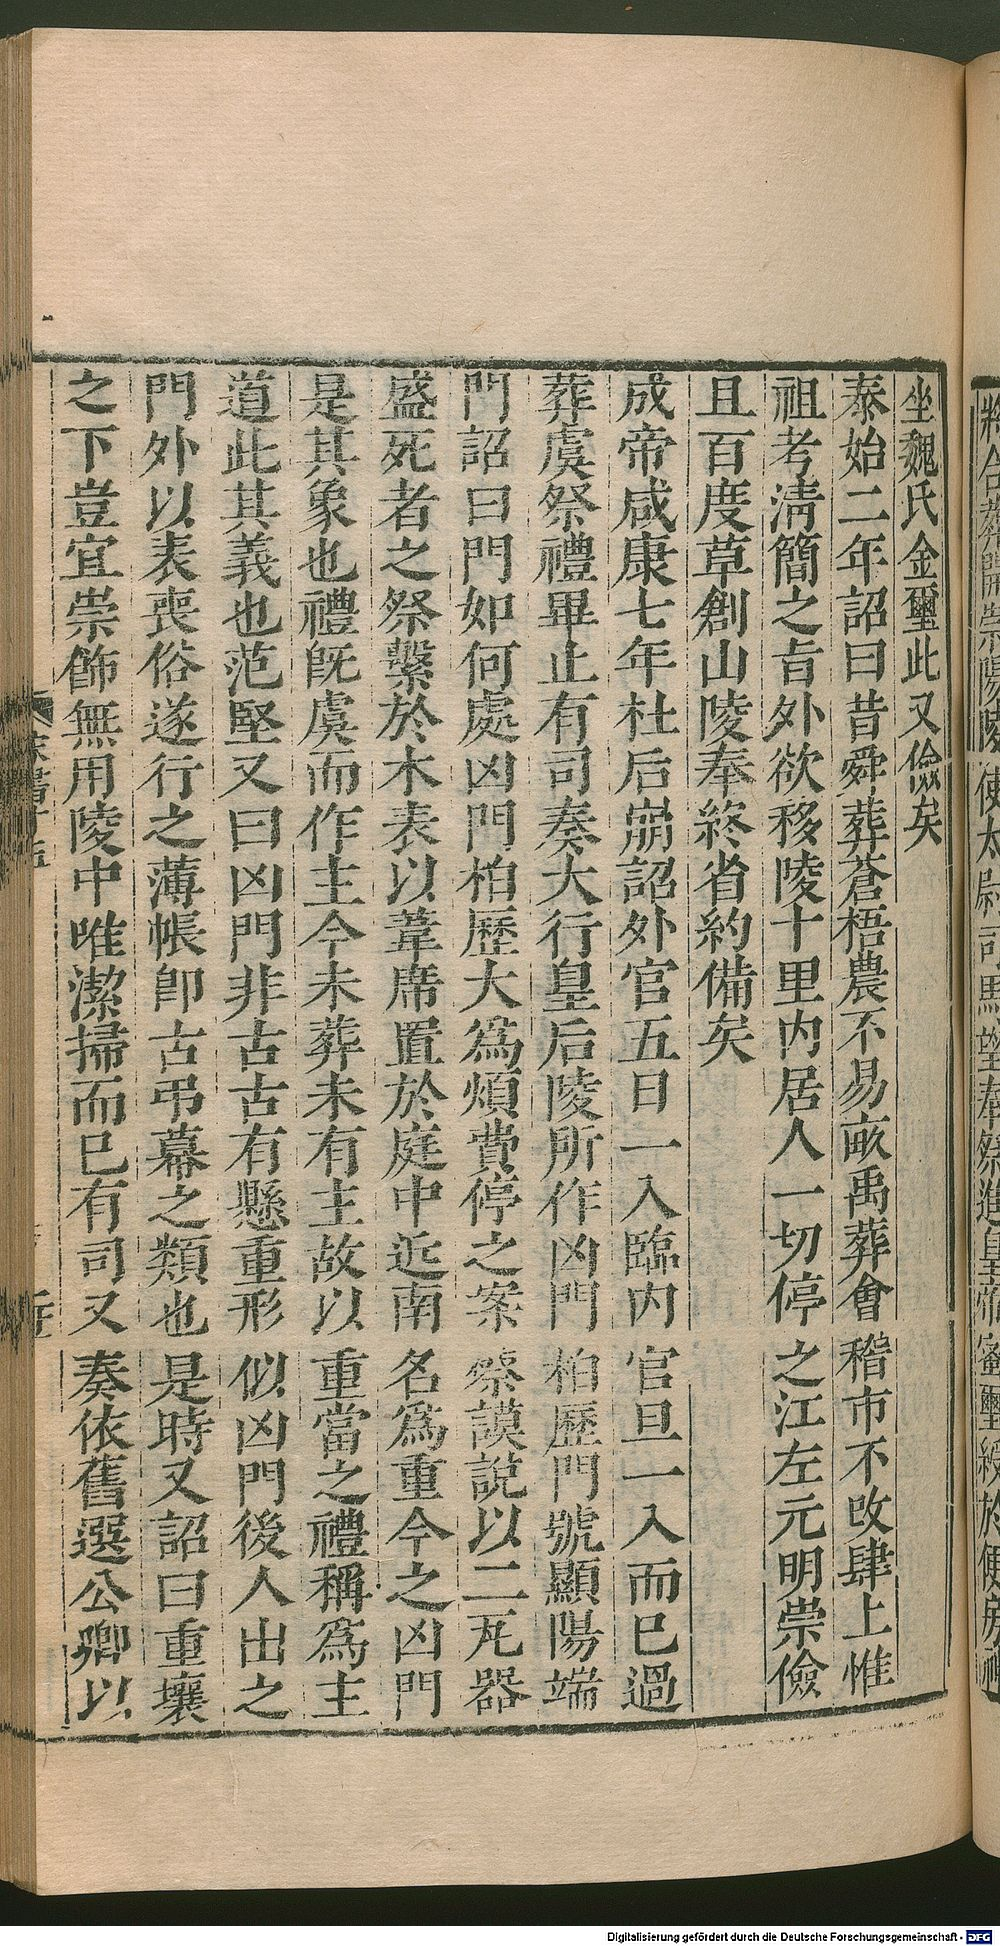 坐魏氏金璽此又儉矣
泰始二年詔曰昔舜葬蒼梧農不易畝禹葬會稽市不改肆上惟
祖考清簡之旨外欲移陵十里內居人一切停之江左元明崇儉
且百度草創山陵奉終省約備矣
成帝咸康七年杜后崩詔外官五日一入臨內官旦一入而已過
葬虞祭禮畢止有司奏大行皇后陵所作凶門柏歷門號顯陽端
門詔曰門如何處凶門柏歷大爲煩費停之案蔡謨說以二瓦器
盛死者之祭繫於木表以葦席置於庭中近南名爲重今之凶門
是其象也禮既虞而作主今未葬未有主故以重當之禮稱爲主
道此其義也范堅又曰凶門非古古有懸重形似凶門後人出之
門外以表喪俗遂行之薄帳卽古弔幕之類也是時又詔曰重壤
之下豈宜崇飾無用陵中唯潔掃而已有司又奏依舊選公卿以
使太尉司馬望奉祭進皇帝蜜璽綬於便房神
Digitalisierung gefördert durch die Deutsche Forschungsgemeinschaft - DFG